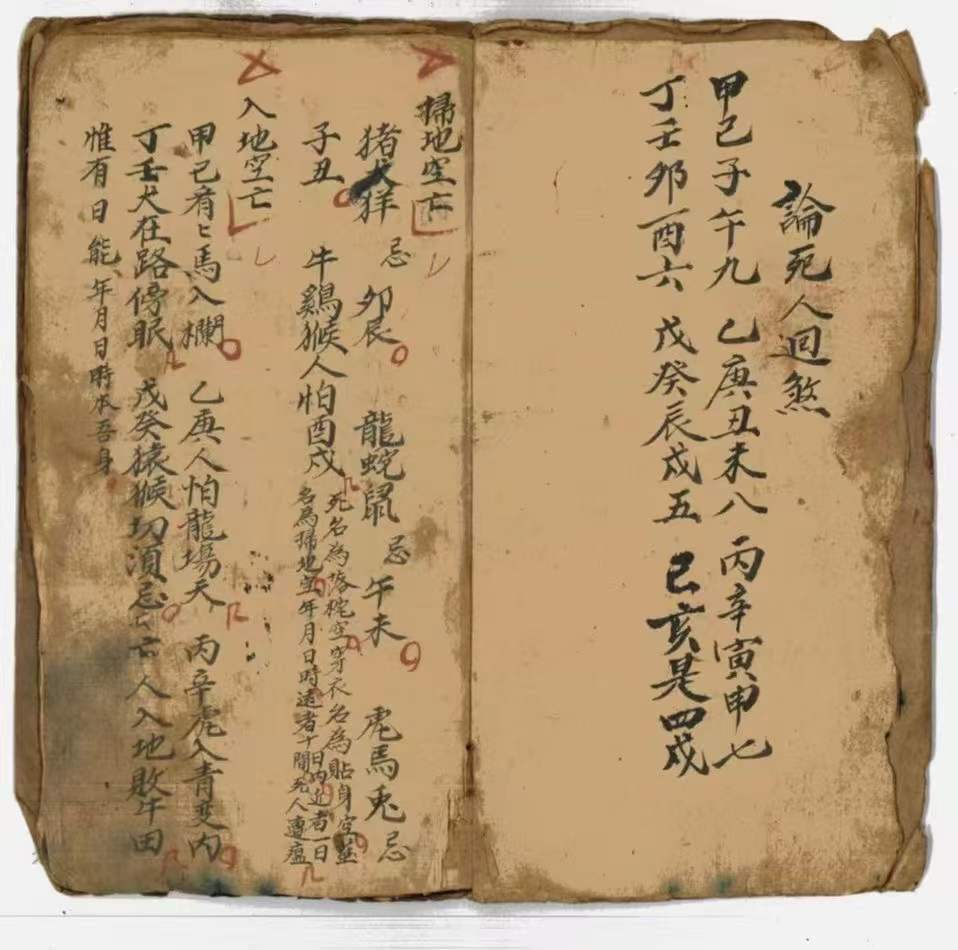 論死人迴煞
甲己子午九 乙庚丑未八 丙辛寅申七
丁壬卯酉六 戊癸辰戌五 巳亥是四成
掃地空亡
猪犬羊 忌 卯辰 龍蛇鼠 忌 午未 虎馬兎 忌
子丑 牛鷄猴人怕酉戌 死名為落枕空穿衣名為貼身空
名為掃地空年月日時遠者十日內近者一日間死人遭瘟
入地空亡
甲己 馬入欄 乙庚人怕龍塲天 丙辛虎入青 內
丁壬犬在路傍眠 戊癸猿猴切須忌 人入地敗牛田
惟有日能 年月日時不吾身